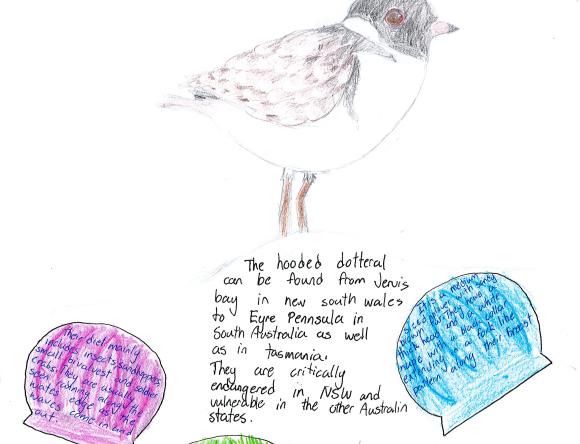 The hooded dotteral
can be found from Jervis
bay in new south wales
to Eyre Pennsula in
South Australia as well
as in tasmania.
They are critically
endangered in NSW and
vulnerable in the other Australin
states.
Their diet mainly
includes insects, sandhoppers,
small bivalves and soldier
crabs. They are usually
seen running along the
water edge as the
waves come in and
out.
It's a medium
with sandy
They have a
black head and a white
extending in a fork like
pattern along their breast